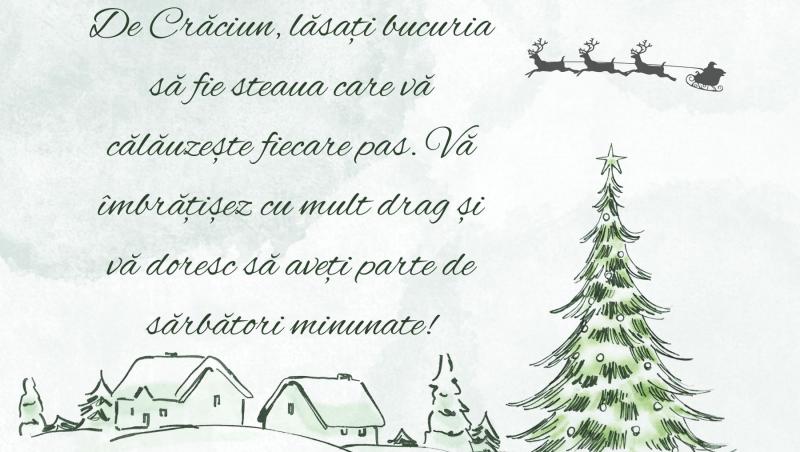 De Crăciun, lăsați bucuria
să fie steaua care vă
călăuzește fiecare pas. Vă
îmbrățișez cu mult drag și
vă doresc să aveți parte de
sărbători minunate!